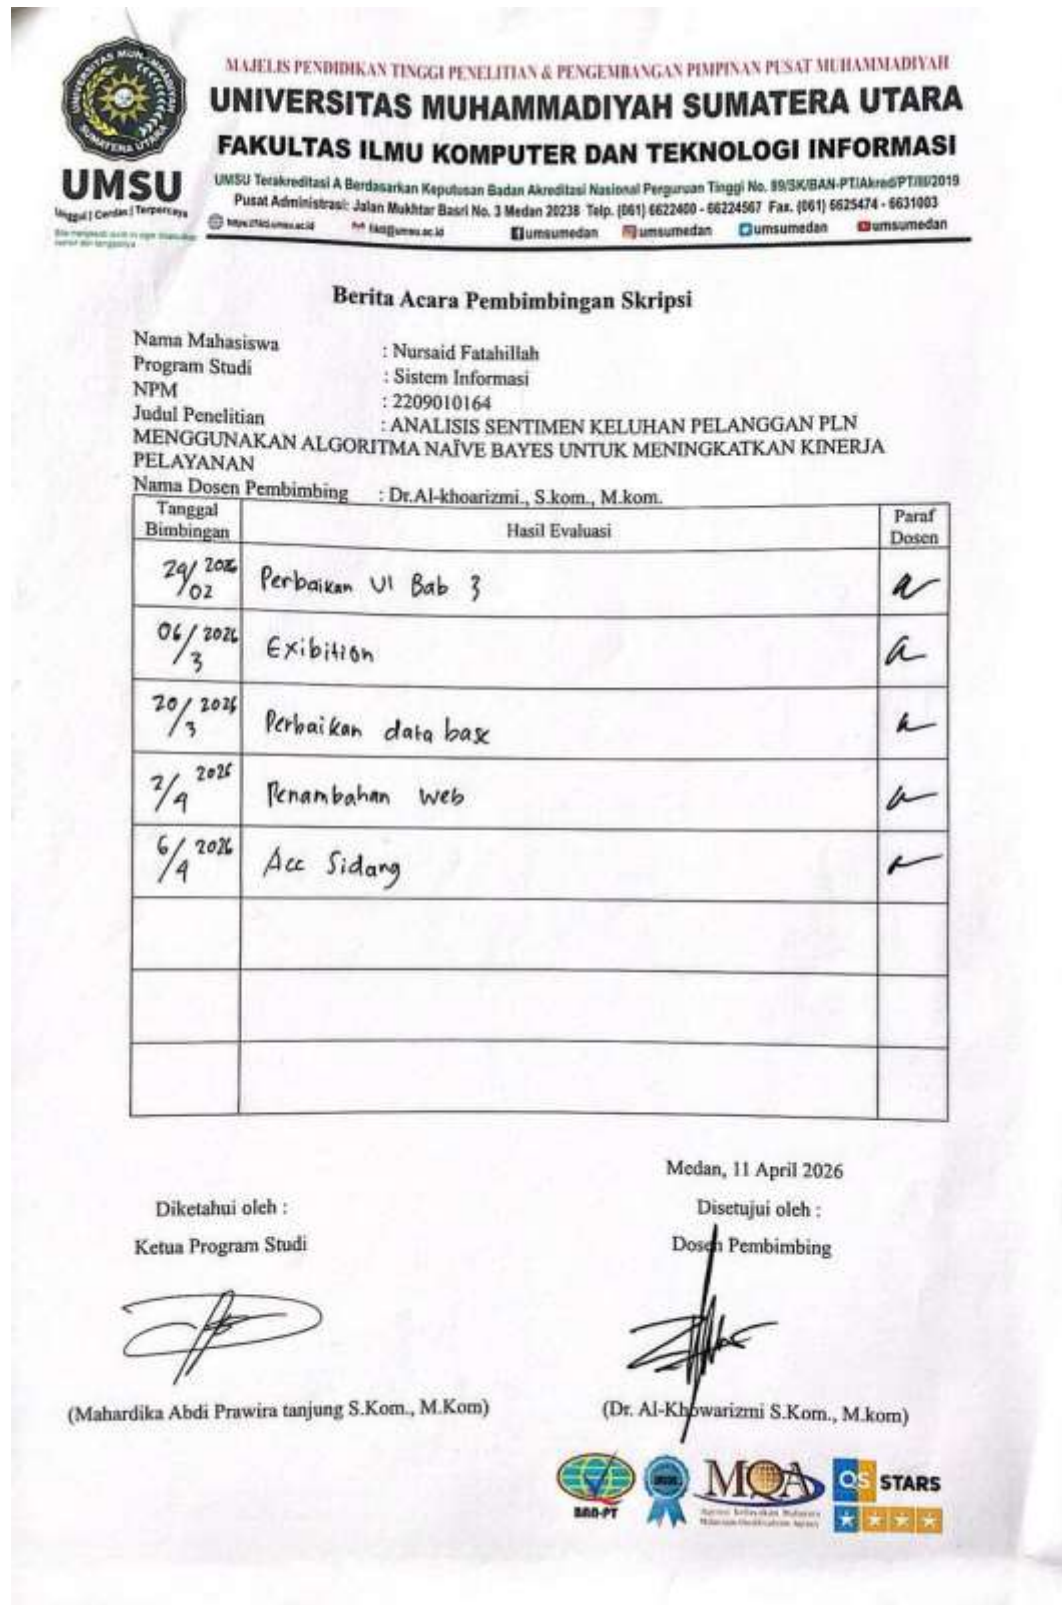 MAJELIS PENDIDIKAN TINGGI PENELITIAN & PENGEMBANGAN PIMPINAN PUSAT MUHAMMADIYAH
UNIVERSITAS MUHAMMADIYAH SUMATERA UTARA
FAKULTAS ILMU KOMPUTER DAN TEKNOLOGI INFORMASI
UMSU Terakreditasi A Berdasarkan Keputusan Badan Akreditasi Nasional Perguruan Tinggi No. 89/SK/BAN-PT/Akred/PT/III/2019
Pusat Administrasi: Jalan Mukhtar Basri No. 3 Medan 20238 Telp. (061) 6622400 - 66224567 Fax. (061) 6625474 - 6631003
umsumedan umsumedan umsumedan umsumedan
UMSU
Unggul | Cerdas | Terpercaya
Berita Acara Pembimbingan Skripsi
Nama Mahasiswa : Nursaid Fatahillah
Program Studi : Sistem Informasi
NPM : 2209010164
Judul Penelitian : ANALISIS SENTIMEN KELUHAN PELANGGAN PLN
MENGGUNAKAN ALGORITMA NAÏVE BAYES UNTUK MENINGKATKAN KINERJA
PELAYANAN
Nama Dosen Pembimbing : Dr.Al-khoarizmi., S.kom., M.kom.
Tanggal Bimbingan Hasil Evaluasi Paraf Dosen
/02 2026 Perbaikan UI Bab 3
06/3 2026 Exibition
20/3 2026 Perbaikan data base
2/4 2026 Penambahan web
6/4 2026 Acc Sidang
Medan, 11 April 2026
Diketahui oleh : Disetujui oleh :
Ketua Program Studi Dosen Pembimbing
(Mahardika Abdi Prawira tanjung S.Kom., M.Kom) (Dr. Al-Khowarizmi S.Kom., M.kom)
BAN-PT MQA QS STARS